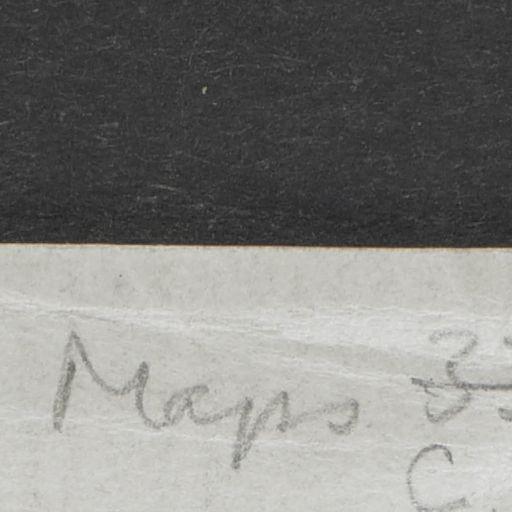 Maps 3
C